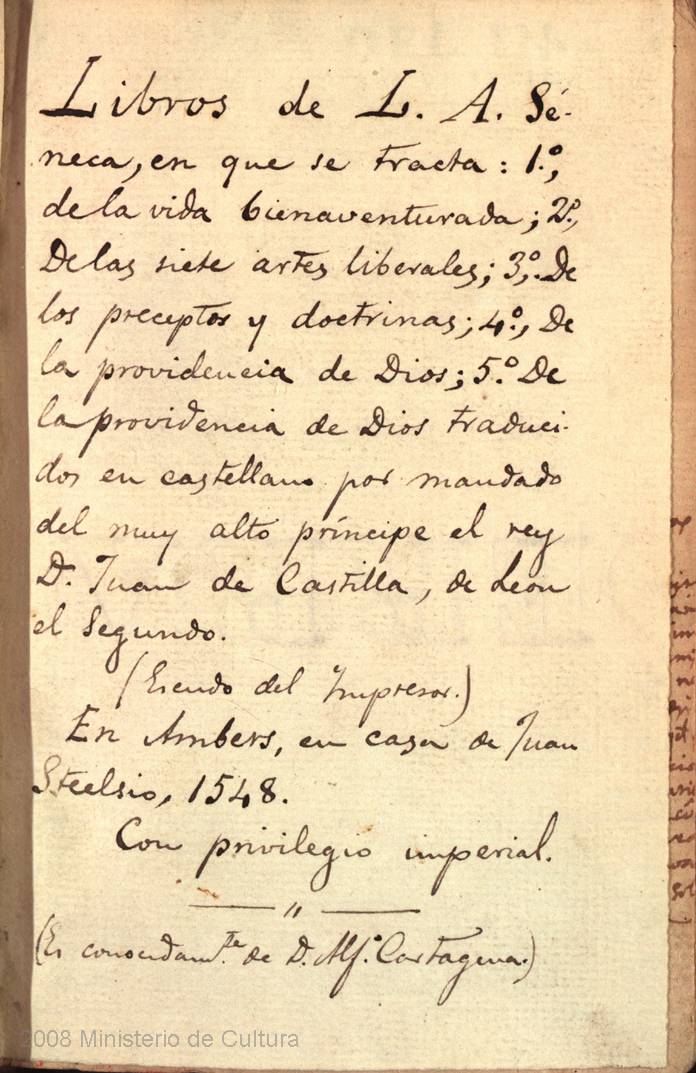 Libros de L. A. Sé-
neca, en que se tracta: 1.º,
de la vida bienaventurada; 2º,
De las siete artes liberales; 3º, De
los preceptos y doctrinas; 4.º, De
la providencia de Dios; 5.º De
la providencia de Dios traduci-
dos en castellano por mandado
del muy alto príncipe el rey
D. Juan de Castilla, de Leon
el Segundo.
(Escudo del Impresor.)
En Ambers, en casa de Juan
Steelsio, 1548.
Con privilegio imperial.
(Es conocidam.te de D. Alf.º Cartagena.)
2008 Ministerio de Cultura